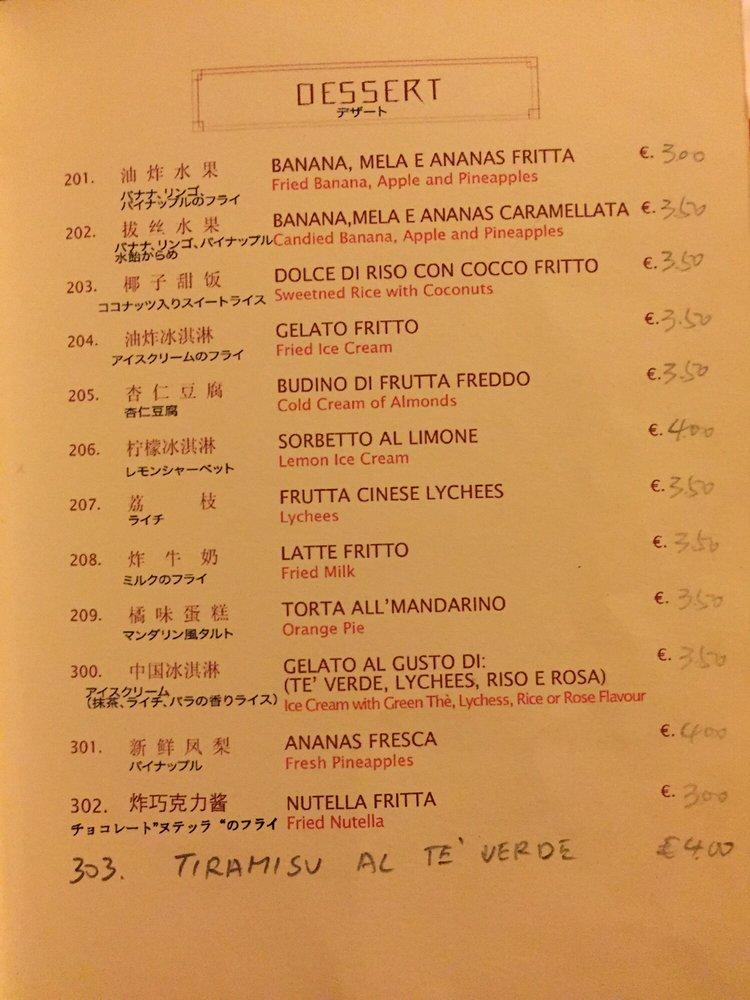 DESSERT
デザート
201. 油炸水果 BANANA, MELA E ANANAS FRITTA €. 3.00
バナナ、リンゴ、 Fried Banana, Apple and Pineapples
パイナップルのフライ
202. 拔丝水果 BANANA,MELA E ANANAS CARAMELLATA €. 3.50
バナナ、リンゴ、パイナップル Candied Banana, Apple and Pineapples
水飴からめ
203. 椰子甜饭 DOLCE DI RISO CON COCCO FRITTO €. 3.50
ココナッツ入りスイートライス Sweetned Rice with Coconuts
204. 油炸冰淇淋 GELATO FRITTO €. 3.50
アイスクリームのフライ Fried Ice Cream
205. 杏仁豆腐 BUDINO DI FRUTTA FREDDO €. 3.50
杏仁豆腐 Cold Cream of Almonds
206. 柠檬冰淇淋 SORBETTO AL LIMONE €. 4.00
レモンシャーベット Lemon Ice Cream
207. 荔枝 FRUTTA CINESE LYCHEES €. 3.50
ライチ Lychees
208. 炸牛奶 LATTE FRITTO €. 3.50
ミルクのフライ Fried Milk
209. 橘味蛋糕 TORTA ALL'MANDARINO €. 3.50
マンダリン風タルト Orange Pie
300. 中国冰淇淋 GELATO AL GUSTO DI: €. 3.50
アイスクリーム (TE' VERDE, LYCHEES, RISO E ROSA)
(抹茶、ライチ、バラの香りライス) Ice Cream with Green Thè, Lychess, Rice or Rose Flavour
301. 新鲜凤梨 ANANAS FRESCA €. 4.00
パイナップル Fresh Pineapples
302. 炸巧克力酱 NUTELLA FRITTA €. 3.00
チョコレート"ヌテッラ "のフライ Fried Nutella
303. TIRAMISU AL TE' VERDE €4.00